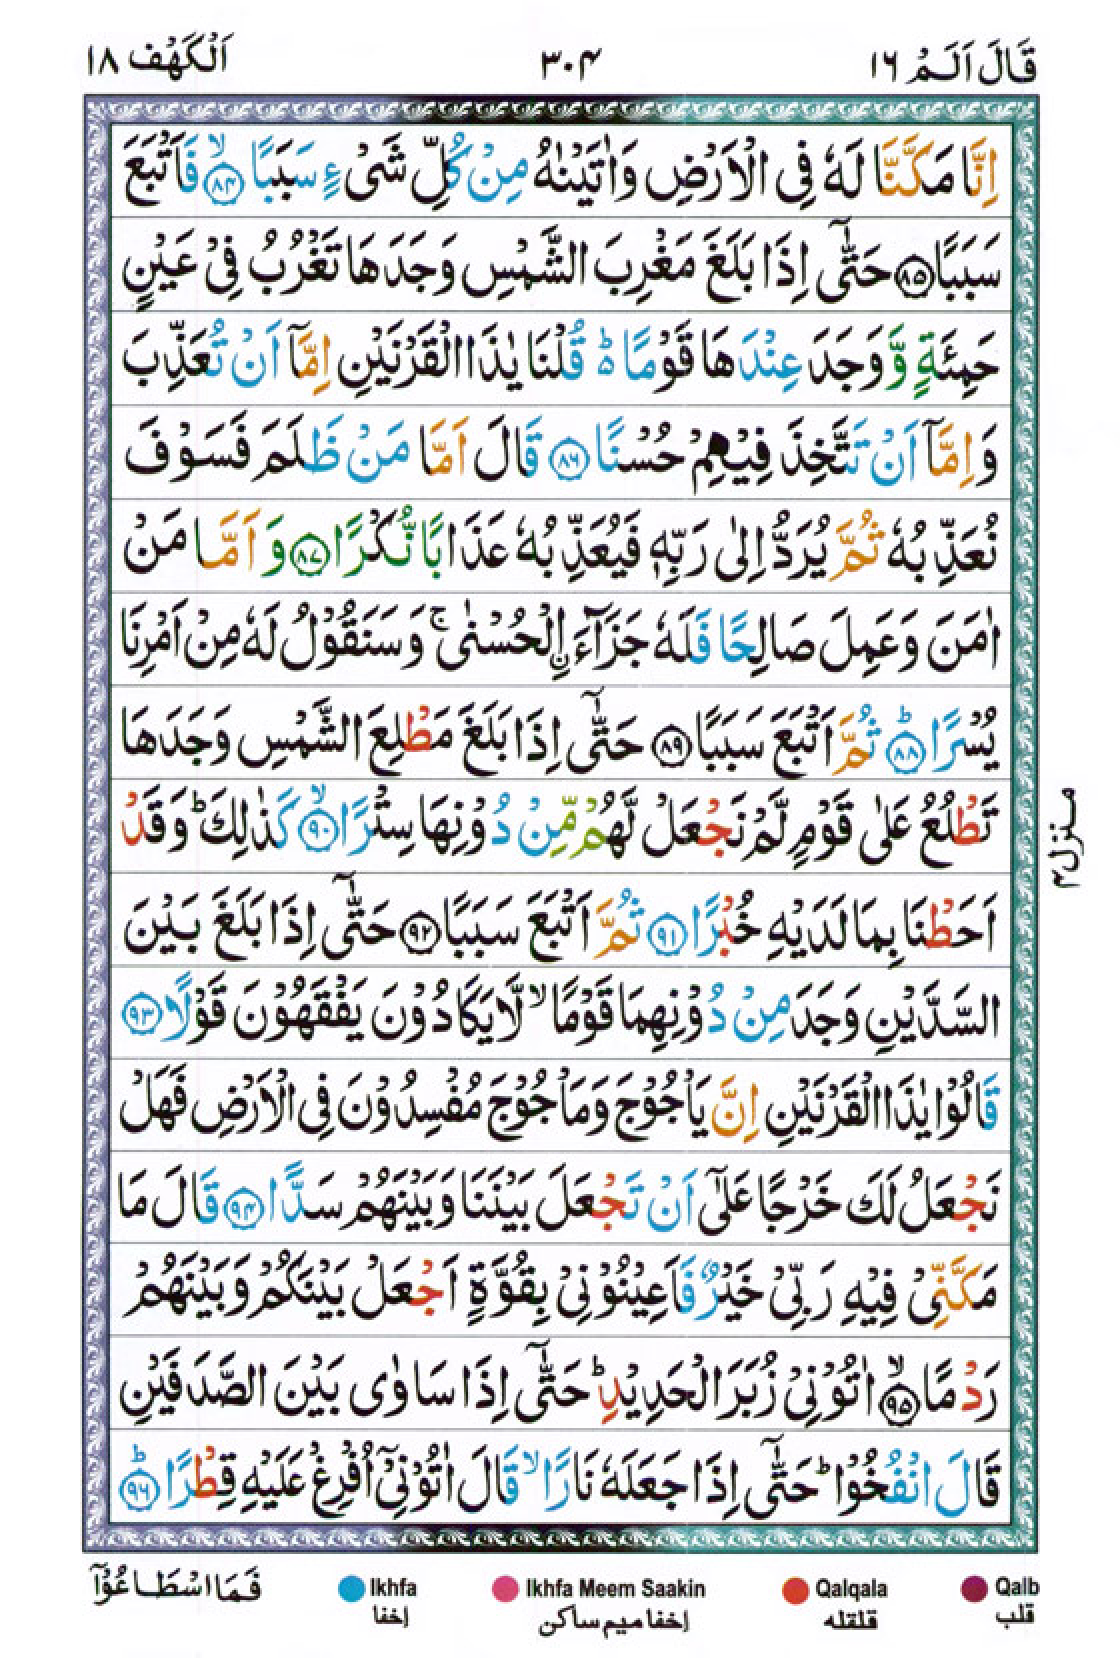 قَالَ اَلَمْ ١٦
٣٠٤
اَلْكَهْف ١٨
اِنَّا مَكَّنَّا لَهٗ فِى الْاَرْضِ وَاٰتَيْنٰهُ مِنْ كُلِّ شَىْءٍ سَبَبًا ۙ‏﴿۸۴﴾ فَاَتْبَعَ
سَبَبًا ﴿۸۵﴾ حَتّٰٓى اِذَا بَلَغَ مَغْرِبَ الشَّمْسِ وَجَدَهَا تَغْرُبُ فِىْ عَيْنٍ
حَمِئَةٍ وَّوَجَدَ عِنْدَهَا قَوْمًا ؕ۬ قُلْنَا يٰذَا الْقَرْنَيْنِ اِمَّاۤ اَنْ تُعَذِّبَ
وَاِمَّاۤ اَنْ تَتَّخِذَ فِيْهِمْ حُسْنًا ﴿۸۶﴾ قَالَ اَمَّا مَنْ ظَلَمَ فَسَوْفَ
نُعَذِّبُهٗ ثُمَّ يُرَدُّ اِلٰى رَبِّهٖ فَيُعَذِّبُهٗ عَذَابًا نُّكْرًا ﴿۸۷﴾ وَاَمَّا مَنْ
اٰمَنَ وَعَمِلَ صَالِحًا فَلَهٗ جَزَآءَ اۨلْحُسْنٰى ۚ وَسَنَقُوْلُ لَهٗ مِنْ اَمْرِنَا
يُسْرًا ؕ﴿۸۸﴾ ثُمَّ اَتْبَعَ سَبَبًا ﴿۸۹﴾ حَتّٰٓى اِذَا بَلَغَ مَطْلِعَ الشَّمْسِ وَجَدَهَا
تَطْلُعُ عَلٰى قَوْمٍ لَّمْ نَجْعَلْ لَّهُمْ مِّنْ دُوْنِهَا سِتْرًا ۙ﴿۹۰﴾ كَذٰلِكَ ؕ وَقَدْ
اَحَطْنَا بِمَا لَدَيْهِ خُبْرًا ﴿۹۱﴾ ثُمَّ اَتْبَعَ سَبَبًا ﴿۹۲﴾ حَتّٰٓى اِذَا بَلَغَ بَيْنَ
السَّدَّيْنِ وَجَدَ مِنْ دُوْنِهِمَا قَوْمًا ۙ لَّا يَكَادُوْنَ يَفْقَهُوْنَ قَوْلًا ﴿۹۳﴾
قَالُوْا يٰذَا الْقَرْنَيْنِ اِنَّ يَاْجُوْجَ وَمَاْجُوْجَ مُفْسِدُوْنَ فِى الْاَرْضِ فَهَلْ
نَجْعَلُ لَكَ خَرْجًا عَلٰٓى اَنْ تَجْعَلَ بَيْنَنَا وَبَيْنَهُمْ سَدًّا ﴿۹۴﴾ قَالَ مَا
مَكَّنِّىْ فِيْهِ رَبِّىْ خَيْرٌ فَاَعِيْنُوْنِىْ بِقُوَّةٍ اَجْعَلْ بَيْنَكُمْ وَبَيْنَهُمْ
رَدْمًا ۙ﴿۹۵﴾ اٰتُوْنِىْ زُبَرَ الْحَدِيْدِ ؕ حَتّٰٓى اِذَا سَاوٰى بَيْنَ الصَّدَفَيْنِ
قَالَ انْفُخُوْا ؕ حَتّٰٓى اِذَا جَعَلَهٗ نَارًا ۙ قَالَ اٰتُوْنِىْۤ اُفْرِغْ عَلَيْهِ قِطْرًا ؕ﴿۹۶﴾
منزل ۴
فَمَا اسْطَاعُوْۤا
Ikhfa
Ikhfa Meem Saakin
Qalqala
Qalb
إخفا
إخفا ميم ساكن
قلقله
قلب